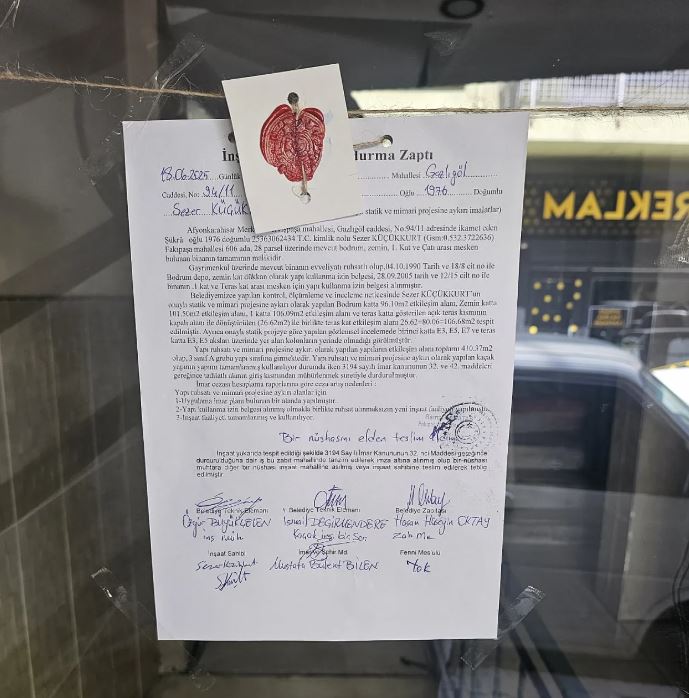 İnş durma Zaptı
18.06.2025 Günlük Mahallesi Gazlıgöl
Caddesi, No: 94/11 Oğlu 1976 Doğumlu
Sezer KÜÇÜK statik ve mimari projesine aykırı imalatlar)
Afyonkarahisar Merk paşa mahallesi, Gazlıgöl caddesi, No:94/11 adresinde ikamet eden
Şükrü oğlu 1976 doğumlu 25363062434 T.C. kimlik nolu Sezer KÜÇÜKKURT (Gsm:0.532.3722636)
Fakıpaşa mahallesi 606 ada, 28 parsel üzerinde mevcut bodrum, zemin, 1. Kat ve Çatı arası mesken
bulunan binanın tamamının malikidir.
Gayrimenkul üzerinde mevcut binanın evveliyatı ruhsatlı olup,04.10.1990 Tarih ve 18/8 cit no ile
Bodrum depo, zemin kat dükkan olarak yapı kullanma izin belgesi, 28.09.2005 tarih ve 12/15 cit no ile
binanın .1 kat ve Teras kat arası mesken için yapı kullanma izin belgesi alınmıştır.
Belediyemizce yapılan kontrol, ölçümleme ve inceleme neticesinde Sezer KÜÇÜKKURT'un
onaylı statik ve mimari projesine aykırı olarak yapılan Bodrum katta 96.10m2 etkileşim alanı, Zemin katta
101.50m2 etkileşim alanı, 1 katta 106.09m2 etkileşim alanı ve teras katta gösterilen açık teras kısmının
kapalı alana dönüştürülen (26.62m2) ile birlikte teras kat etkileşim alanı 26.62+80.06=106.68m2 tespit
edilmiştir. Ayrıca onaylı statik projeye göre yapılan gözlemsel incelemede birinci katta E3, E5, E7 ve teras
katta E3, E5 aksları üzerinde yer alan kolonların yerinde olmadığı görülmüştür.
Yapı ruhsatı ve mimari projesine aykırı olarak yapılan yapıların etkileşim alanı toplamı 410.37m2
olup, 3 sınıf A grubu yapı sınıfına girmektedir. Yapı ruhsatı ve mimari projesine aykırı olarak yapılan kaçak
yapının yapımı tamamlanmış kullanılıyor durumda iken 3194 sayılı imar kanununun 32. ve 42. maddeleri
gereğince tadilatlı alanın giriş kısmından mühürlenmek suretiyle durdurulmuştur.
İmar cezası hesaplama raporlarına göre ceza artış nedenleri :
Yapı ruhsatı ve mimari projesine aykırı alanlar için
1-Uygulama imar planı bulunan bir alanda yapılmıştır.
2-Yapı kullanma izin belgesi alınmış olmakla birlikte ruhsat alınmaksızın yeni inşaat faaliyeti yapılmıştır.
3-İnşaat faaliyeti tamamlanmış ve kullanılıyor.
Bir nüshasını elden teslim
İnşaat yukarıda tespit edildiği şekilde 3194 Sayılı İmar Kanununun 32. nci Maddesi gereğinde
durdurulduğuna dair iş bu zabıt mahallinde tanzim edilerek imza altına alınmış olup bir nüshası
muhtara diğer bir nüshası inşaat mahalline asılmış veya inşaat sahibine teslim edilerek tebliğ
edilmiştir.
Belediye Teknik Elemanı Belediye Teknik Elemanı Belediye Zabıtası
Özgür BÜYÜKÇELEN İsmail DEĞİRMENDERE Hasan Hüseyin OKTAY
İnşaat Sahibi İmar ve Şehir Md. Fenni Mes'ulü
Mustafa Bülent BİLEN Yok
REKLAM